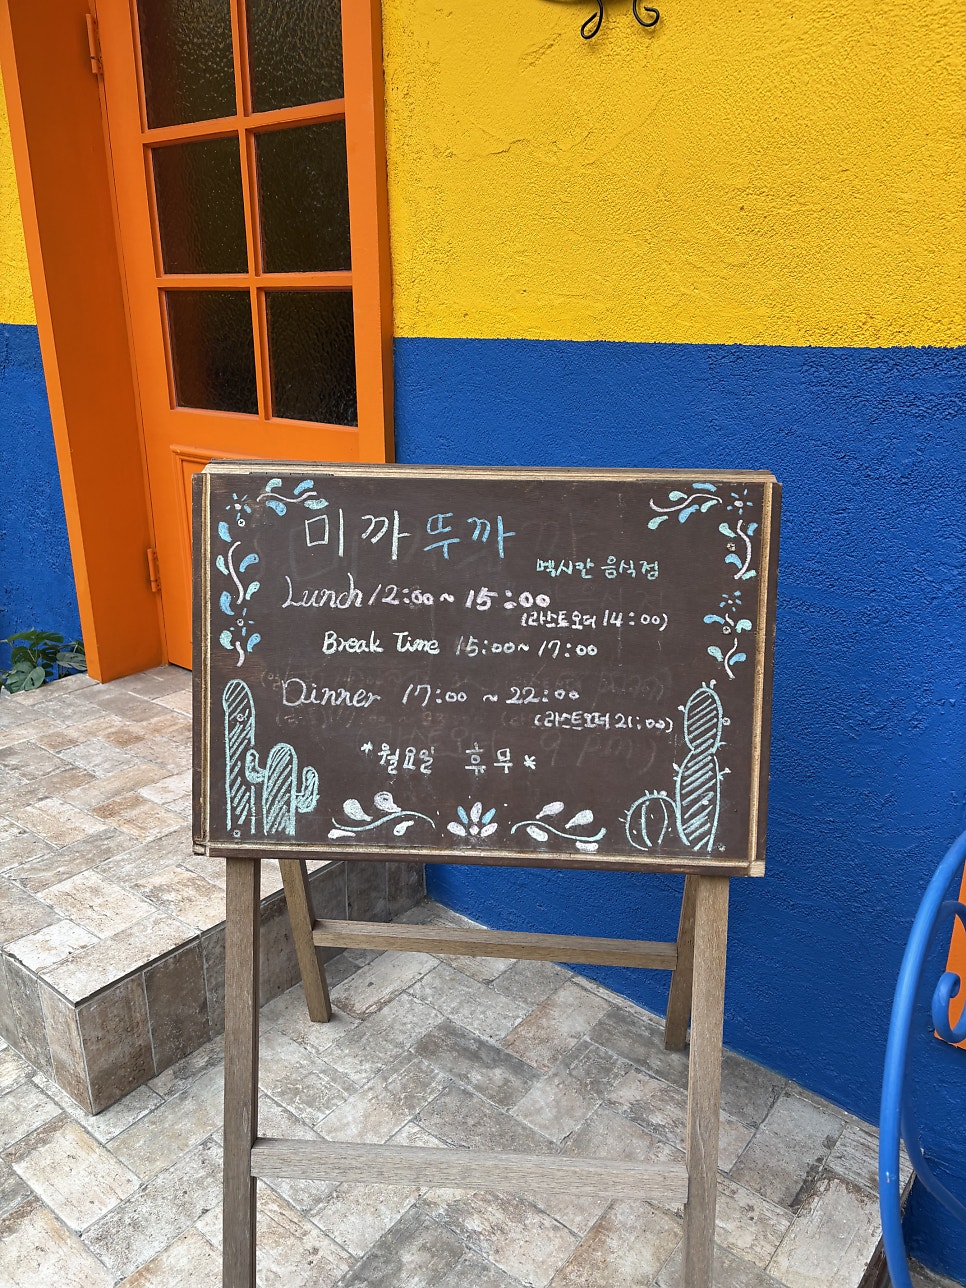 미까뚜까
멕시칸 음식점
Lunch 12:00 ~ 15:00
(라스트오더 14:00)
Break Time 15:00 ~ 17:00
Dinner 17:00 ~ 22:00
(라스트오더 21:00)
*월요일 휴무*